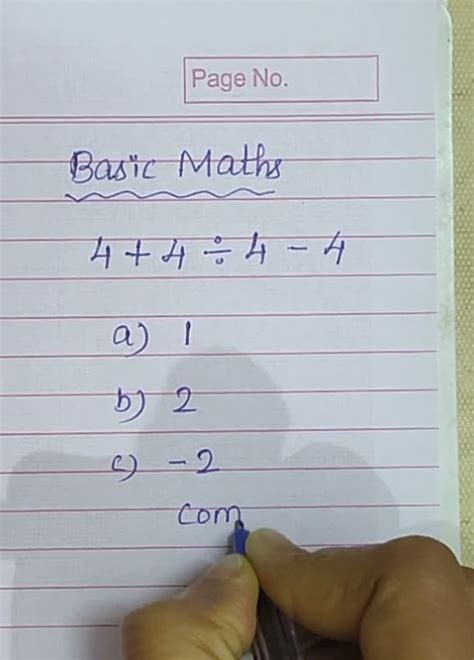 Page No.
Basic Maths
4 + 4 ÷ 4 - 4
a) 1
b) 2
c) -2
com